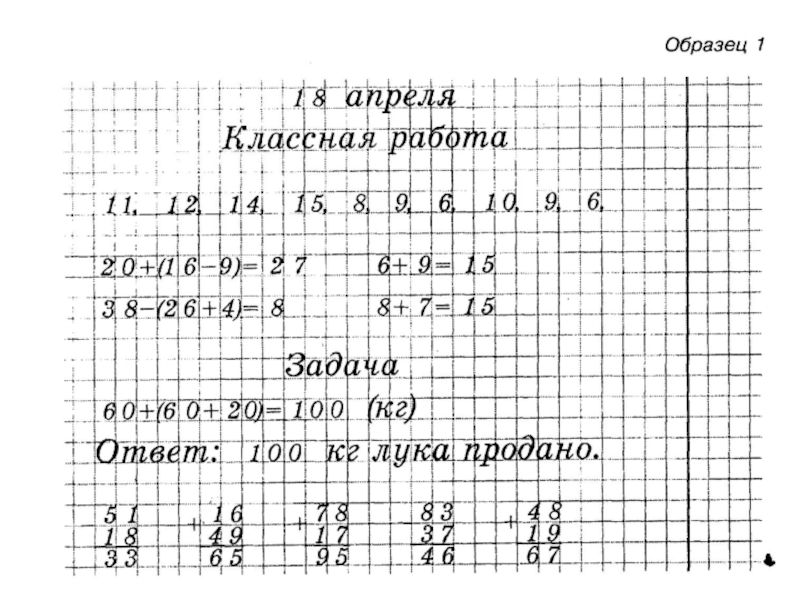 Образец 1
18 апреля
Классная работа
11, 12, 14, 15, 8, 9, 6, 10, 9, 6,
20+(16−9)= 27 6+9= 15
38−(26+4)= 8 8+7= 15
Задача
60+(60+20)= 100 (кг)
Ответ: 100 кг лука продано.
51 + 16 + 78 83 + 48
18 49 17 37 19
33 65 95 46 67